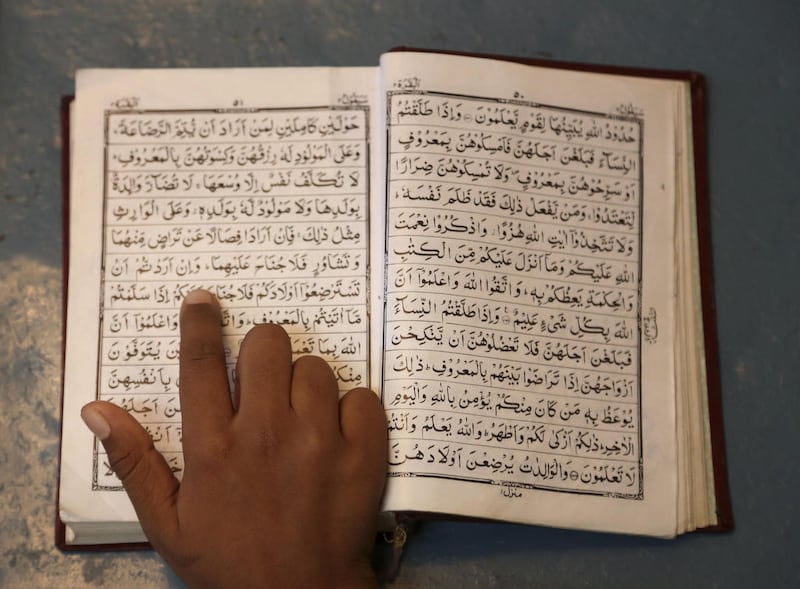 سيقول ٢ ٥٠ البقرة ٢
حُدُوْدُ اللهِ يُبَيِّنُهَا لِقَوْمٍ يَّعْلَمُوْنَ وَاِذَا طَلَّقْتُمُ
النِّسَآءَ فَبَلَغْنَ اَجَلَهُنَّ فَاَمْسِكُوْهُنَّ بِمَعْرُوْفٍ
اَوْ سَرِّحُوْهُنَّ بِمَعْرُوْفٍ وَلَا تُمْسِكُوْهُنَّ ضِرَارًا
لِّتَعْتَدُوْا وَمَنْ يَّفْعَلْ ذٰلِكَ فَقَدْ ظَلَمَ نَفْسَهٗ
وَلَا تَتَّخِذُوْٓا اٰيٰتِ اللهِ هُزُوًا وَّاذْكُرُوْا نِعْمَتَ
اللهِ عَلَيْكُمْ وَمَآ اَنْزَلَ عَلَيْكُمْ مِّنَ الْكِتٰبِ
وَالْحِكْمَةِ يَعِظُكُمْ بِهٖ وَاتَّقُوا اللهَ وَاعْلَمُوْٓا اَنَّ
اللهَ بِكُلِّ شَيْءٍ عَلِيْمٌ وَاِذَا طَلَّقْتُمُ النِّسَآءَ
فَبَلَغْنَ اَجَلَهُنَّ فَلَا تَعْضُلُوْهُنَّ اَنْ يَّنْكِحْنَ
اَزْوَاجَهُنَّ اِذَا تَرَاضَوْا بَيْنَهُمْ بِالْمَعْرُوْفِ ذٰلِكَ
يُوْعَظُ بِهٖ مَنْ كَانَ مِنْكُمْ يُؤْمِنُ بِاللهِ وَالْيَوْمِ
الْاٰخِرِ ذٰلِكُمْ اَزْكٰى لَكُمْ وَاَطْهَرُ وَاللهُ يَعْلَمُ وَاَنْتُمْ
لَا تَعْلَمُوْنَ وَالْوَالِدٰتُ يُرْضِعْنَ اَوْلَادَهُنَّ
منزل ١
سيقول ٢ ٥١ البقرة ٢
حَوْلَيْنِ كَامِلَيْنِ لِمَنْ اَرَادَ اَنْ يُّتِمَّ الرَّضَاعَةَ
وَعَلَى الْمَوْلُوْدِ لَهٗ رِزْقُهُنَّ وَكِسْوَتُهُنَّ بِالْمَعْرُوْفِ
لَا تُكَلَّفُ نَفْسٌ اِلَّا وُسْعَهَا لَا تُضَآرَّ وَالِدَةٌ
بِوَلَدِهَا وَلَا مَوْلُوْدٌ لَّهٗ بِوَلَدِهٖ وَعَلَى الْوَارِثِ
مِثْلُ ذٰلِكَ فَاِنْ اَرَادَا فِصَالًا عَنْ تَرَاضٍ مِّنْهُمَا
وَتَشَاوُرٍ فَلَا جُنَاحَ عَلَيْهِمَا وَاِنْ اَرَدْتُّمْ اَنْ
تَسْتَرْضِعُوْٓا اَوْلَادَكُمْ فَلَا جُنَاحَ اِذَا سَلَّمْتُمْ
مَّآ اٰتَيْتُمْ بِالْمَعْرُوْفِ وَاعْلَمُوْٓا اَنَّ
اللهَ بِمَا يُتَوَفَّوْنَ
مِنْكُمْ بِاَنْفُسِهِنَّ
اَجَلَهُنَّ